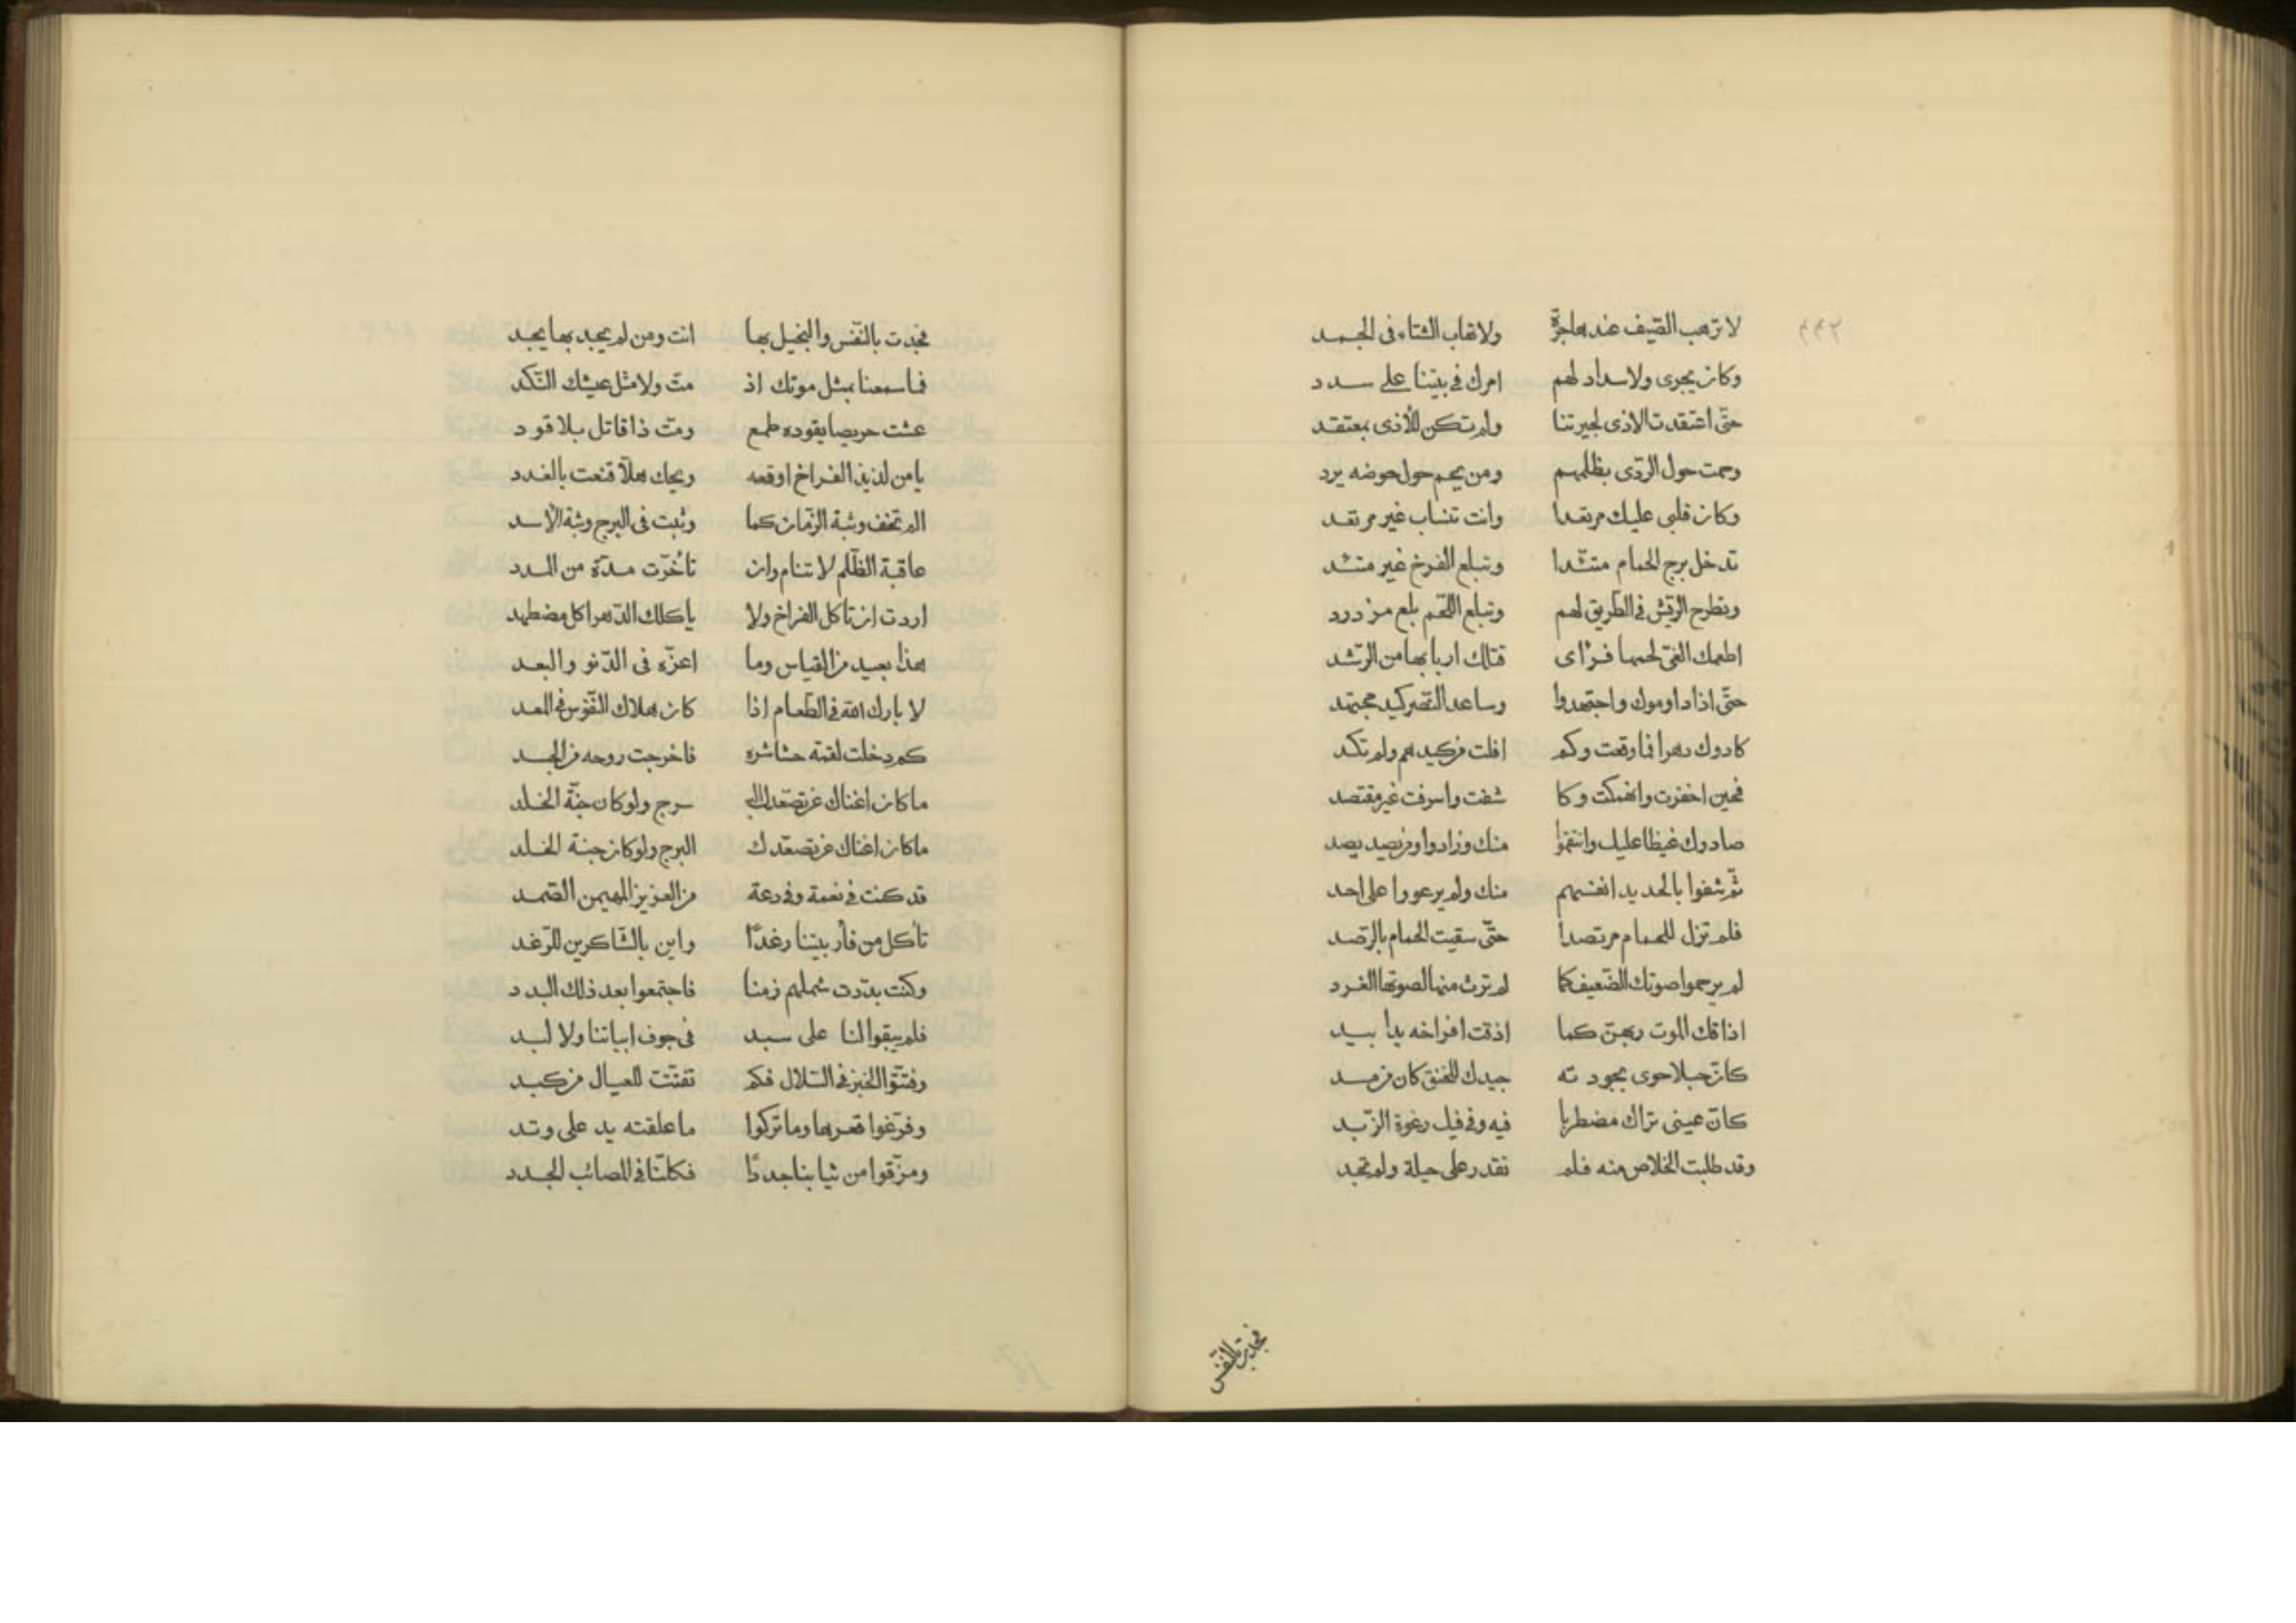 ٢٣٢
لا ترهب الصّيف عند هاجرّة ولا تهاب الشتاء فى الجمد
وكان يجرى ولا سداد لهم امرك فى بيتنا على سدد
حتّى اعتقدت الاذى لجيرتنا ولم تكن للأذى بمعتقد
وحمت حول الرّدى بظلمهم ومن يحم حول حوضه يرد
وكان قلبى عليك مرتعدا وانت تنساب غير مرتعد
تدخل برج الحمام متئدا وتبلع الفرخ غير متئد
وتطرح الرّيش فى الطّريق لهم وتبلع اللّحم بلع مزدرد
اطعمك الغىّ لحمها فرأى قتلك اربابها من الرّشد
حتّى اذا داوموك واجتهدوا وساعد النّصر كيد مجتهد
كادوك دهرا فما وقعت وكم افلت من كيدهم ولم تكد
فحين اخفرت وانهمكت وكا شفت واسرفت غير مقتصد
صادوك غيظا عليك وانتقموا منك وزادوا ومن يصيد يصد
ثمّ شفوا بالحديد انفسهم منك ولم يرعووا على احد
فلم تزل للحمام مرتصدا حتّى سقيت الحمام بالرّصد
لم يرحموا صوتك الضّعيف كما لم ترث منها لصوتها الغرد
اذاقك الموت ربهنّ كما اذقت افراخه يدا بيد
كانّ حبلا حوى بجودته جيدك للخنق كان من مسد
كانّ عينى تراك مضطربا فيه وفى فيك رغوة الزّبد
وقد طلبت الخلاص منه فلم تقدر على حيلة ولم تجد
فجدت بالنّفس
فجدت بالنّفس والبخيل بها انت ومن لم يجد بها يجد
فما سمعنا بمثل موتك اذ متّ ولا مثل عيشك النّكد
عشت حريصا يقوده طمع ومتّ ذا قاتل بلا قود
يا من لذيذ الفراخ اوقعه ويحك هلّا قنعت بالغدد
الم تخف وثبة الزّمان كما وثبت فى البرج وثبة الأسد
عاقبة الظّلم لا تنام وان تأخّرت مدّة من المدد
اردت ان تاكل الفراخ ولا ياكلك الدّهر اكل مضطهد
هذا بعيد من القياس وما اعزّه فى الدّنو والبعد
لا بارك الله فى الطّعام اذا كان هلاك النّفوس فى المعد
كم دخلت لقمة حشا شره فاخرجت روحه من الجسد
ما كان اغناك عن تصعّدك الب سرج ولو كان جنّة الخلد
ما كان اغناك عن تصعّدك البرج ولو كان جنة الخلد
قد كنت فى نعمة وفى دعة من العزيز المهيمن الصّمد
تأكل من فأر بيتنا رغدًا واين بالشّاكرين للرّغد
وكنت بدّدت شملهم زمنا فاجتمعوا بعد ذلك البدد
فلم يبقوا لنا على سبد فى جوف ابياتنا ولا لبد
وفتّتوا الخبز فى السّلال فكم تفتّتت للعيال من كبد
وفرّغوا قعرها وما تركوا ما علقته يد على وتد
ومزّقوا من ثيابنا جددًا فكلّنا فى المصائب الجدد